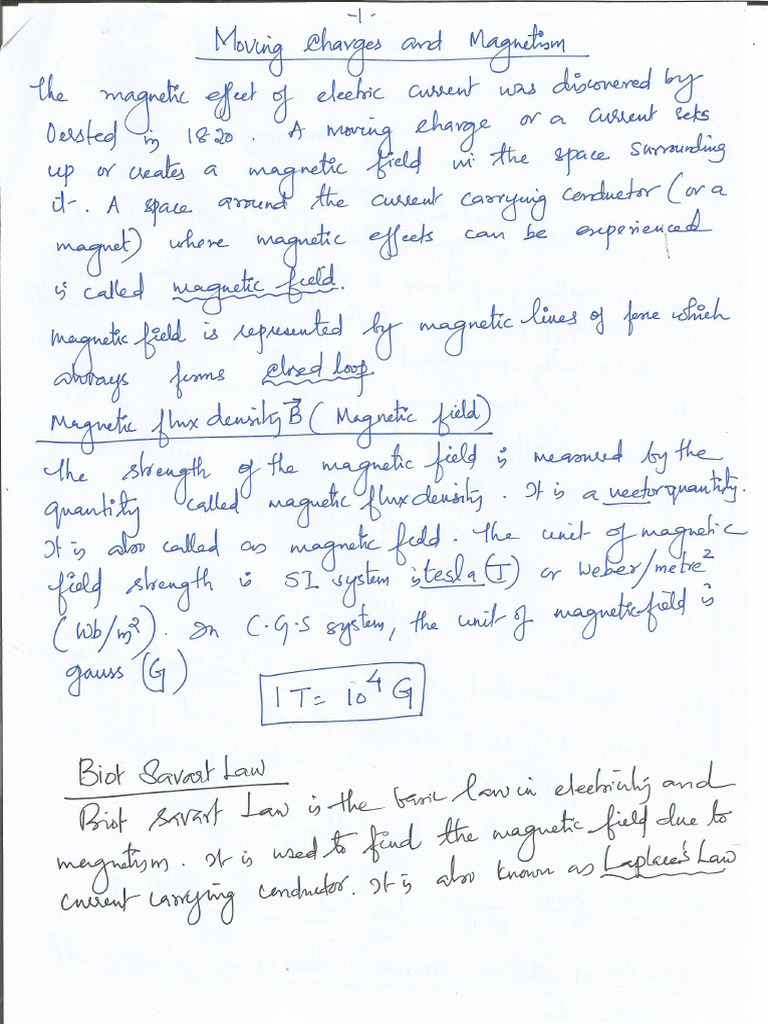 -1-
Moving Charges and Magnetism
The magnetic effect of electric current was discovered by
Oersted in 1820. A moving charge or a current sets
up or creates a magnetic field in the space surrounding
it. A space around the current carrying conductor (or a
magnet) where magnetic effects can be experienced
is called magnetic field.
Magnetic field is represented by magnetic lines of force which
always forms closed loop.
Magnetic flux density B⃗ (Magnetic field)
The strength of the magnetic field is measured by the
quantity called magnetic flux density. It is a vector quantity.
It is also called as magnetic field. The unit of magnetic
field strength is SI system is tesla (T) or Weber/metre²
(Wb/m²). In C.G.S system, the unit of magnetic field is
gauss (G)
1 T = 10⁴ G
Biot Savart Law
Biot Savart Law is the basic law in electricity and
magnetism. It is used to find the magnetic field due to
current carrying conductor. It is also known as Laplace's Law